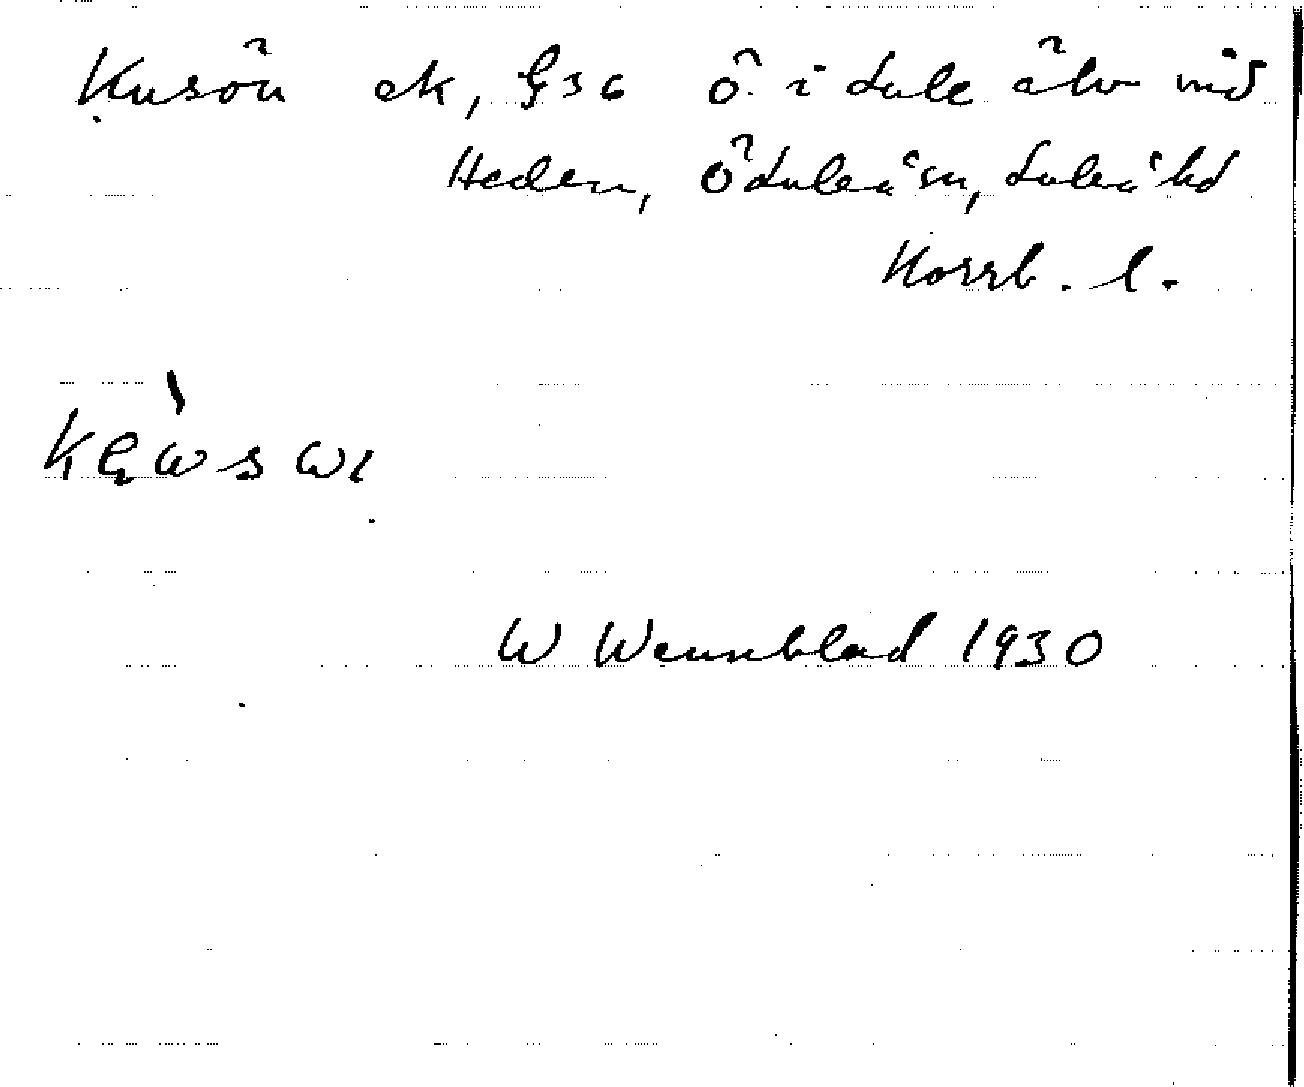 Kusön ek, G36 Ö. i Lule älv vid
Heden, ÖLuleå sn, Luleå hd
Norrb. l.
W Wennblad 1930